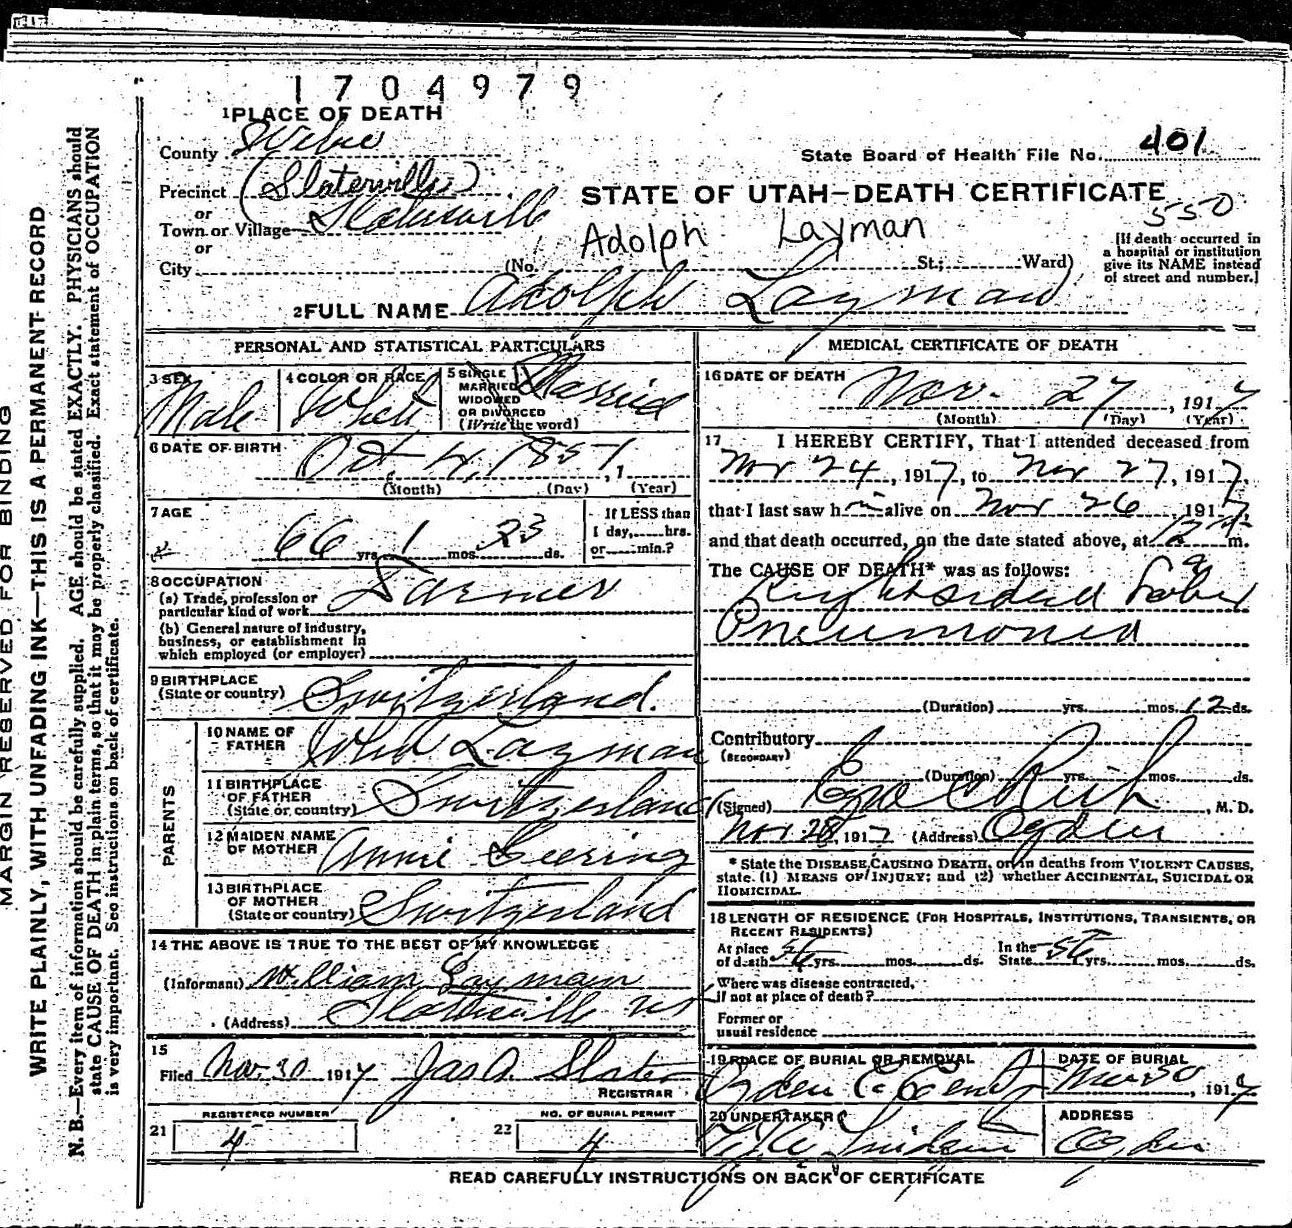 1704979
1 PLACE OF DEATH
County Weber
State Board of Health File No. 401
Precinct (Slaterville)
STATE OF UTAH—DEATH CERTIFICATE
or
Town or Village Slaterville
550
or
Adolph Layman
City (No. St.; Ward)
[If death occurred in
a hospital or institution
give its NAME instead
of street and number.]
2 FULL NAME Adolph Layman
PERSONAL AND STATISTICAL PARTICULARS
3 SEX
Male
4 COLOR OR RACE
White
5 SINGLE
MARRIED
WIDOWED
OR DIVORCED
(Write the word)
Married
6 DATE OF BIRTH Oct. 4, 1851, 1
(Month) (Day) (Year)
7 AGE
66 yrs. 1 mos. 23 ds.
If LESS than
1 day, hrs.
or min.?
8 OCCUPATION
(a) Trade, profession or
particular kind of work Farmer
(b) General nature of industry,
business, or establishment in
which employed (or employer)
9 BIRTHPLACE
(State or country) Switzerland.
PARENTS
10 NAME OF
FATHER John Layman
11 BIRTHPLACE
OF FATHER
(State or country) Switzerland
12 MAIDEN NAME
OF MOTHER Annie Geering
13 BIRTHPLACE
OF MOTHER
(State or country) Switzerland
14 THE ABOVE IS TRUE TO THE BEST OF MY KNOWLEDGE
(Informant) William Layman
(Address) Slaterville Ut
15
Filed Nov. 30 1917 Jas A. Slater
REGISTRAR
REGISTERED NUMBER
21 4
NO. OF BURIAL PERMIT
22 4
MEDICAL CERTIFICATE OF DEATH
16 DATE OF DEATH
Nov. 27, 1917
(Month) (Day) (Year)
17 I HEREBY CERTIFY, That I attended deceased from
Nov 24, 1917, to Nov 27, 1917,
that I last saw him alive on Nov 26, 1917,
and that death occurred, on the date stated above, at 12 m.
The CAUSE OF DEATH* was as follows:
Right sided Lobar
Pneumonia
(Duration) yrs. mos. 12 ds.
Contributory
(SECONDARY)
(Duration) yrs. mos. ds.
(Signed) Ezra C Rich, M. D.
Nov 28, 1917 (Address) Ogden
* State the DISEASE CAUSING DEATH, or in deaths from VIOLENT CAUSES,
state (1) MEANS OF INJURY; and (2) whether ACCIDENTAL, SUICIDAL OR
HOMICIDAL.
18 LENGTH OF RESIDENCE (FOR HOSPITALS, INSTITUTIONS, TRANSIENTS, OR
RECENT RESIDENTS)
At place
of death 56 yrs. mos. ds.
In the
State 56 yrs. mos. ds.
Where was disease contracted,
if not at place of death?
Former or
usual residence
19 PLACE OF BURIAL OR REMOVAL
Ogden
DATE OF BURIAL
Nov 30, 1917
20 UNDERTAKER
ADDRESS
Ogden
READ CAREFULLY INSTRUCTIONS ON BACK OF CERTIFICATE
MARGIN RESERVED FOR BINDING
WRITE PLAINLY, WITH UNFADING INK—THIS IS A PERMANENT RECORD
N. B.—Every item of information should be carefully supplied. AGE should be stated EXACTLY. PHYSICIANS should
state CAUSE OF DEATH in plain terms, so that it may be properly classified. Exact statement of OCCUPATION
is very important. See instructions on back of certificate.